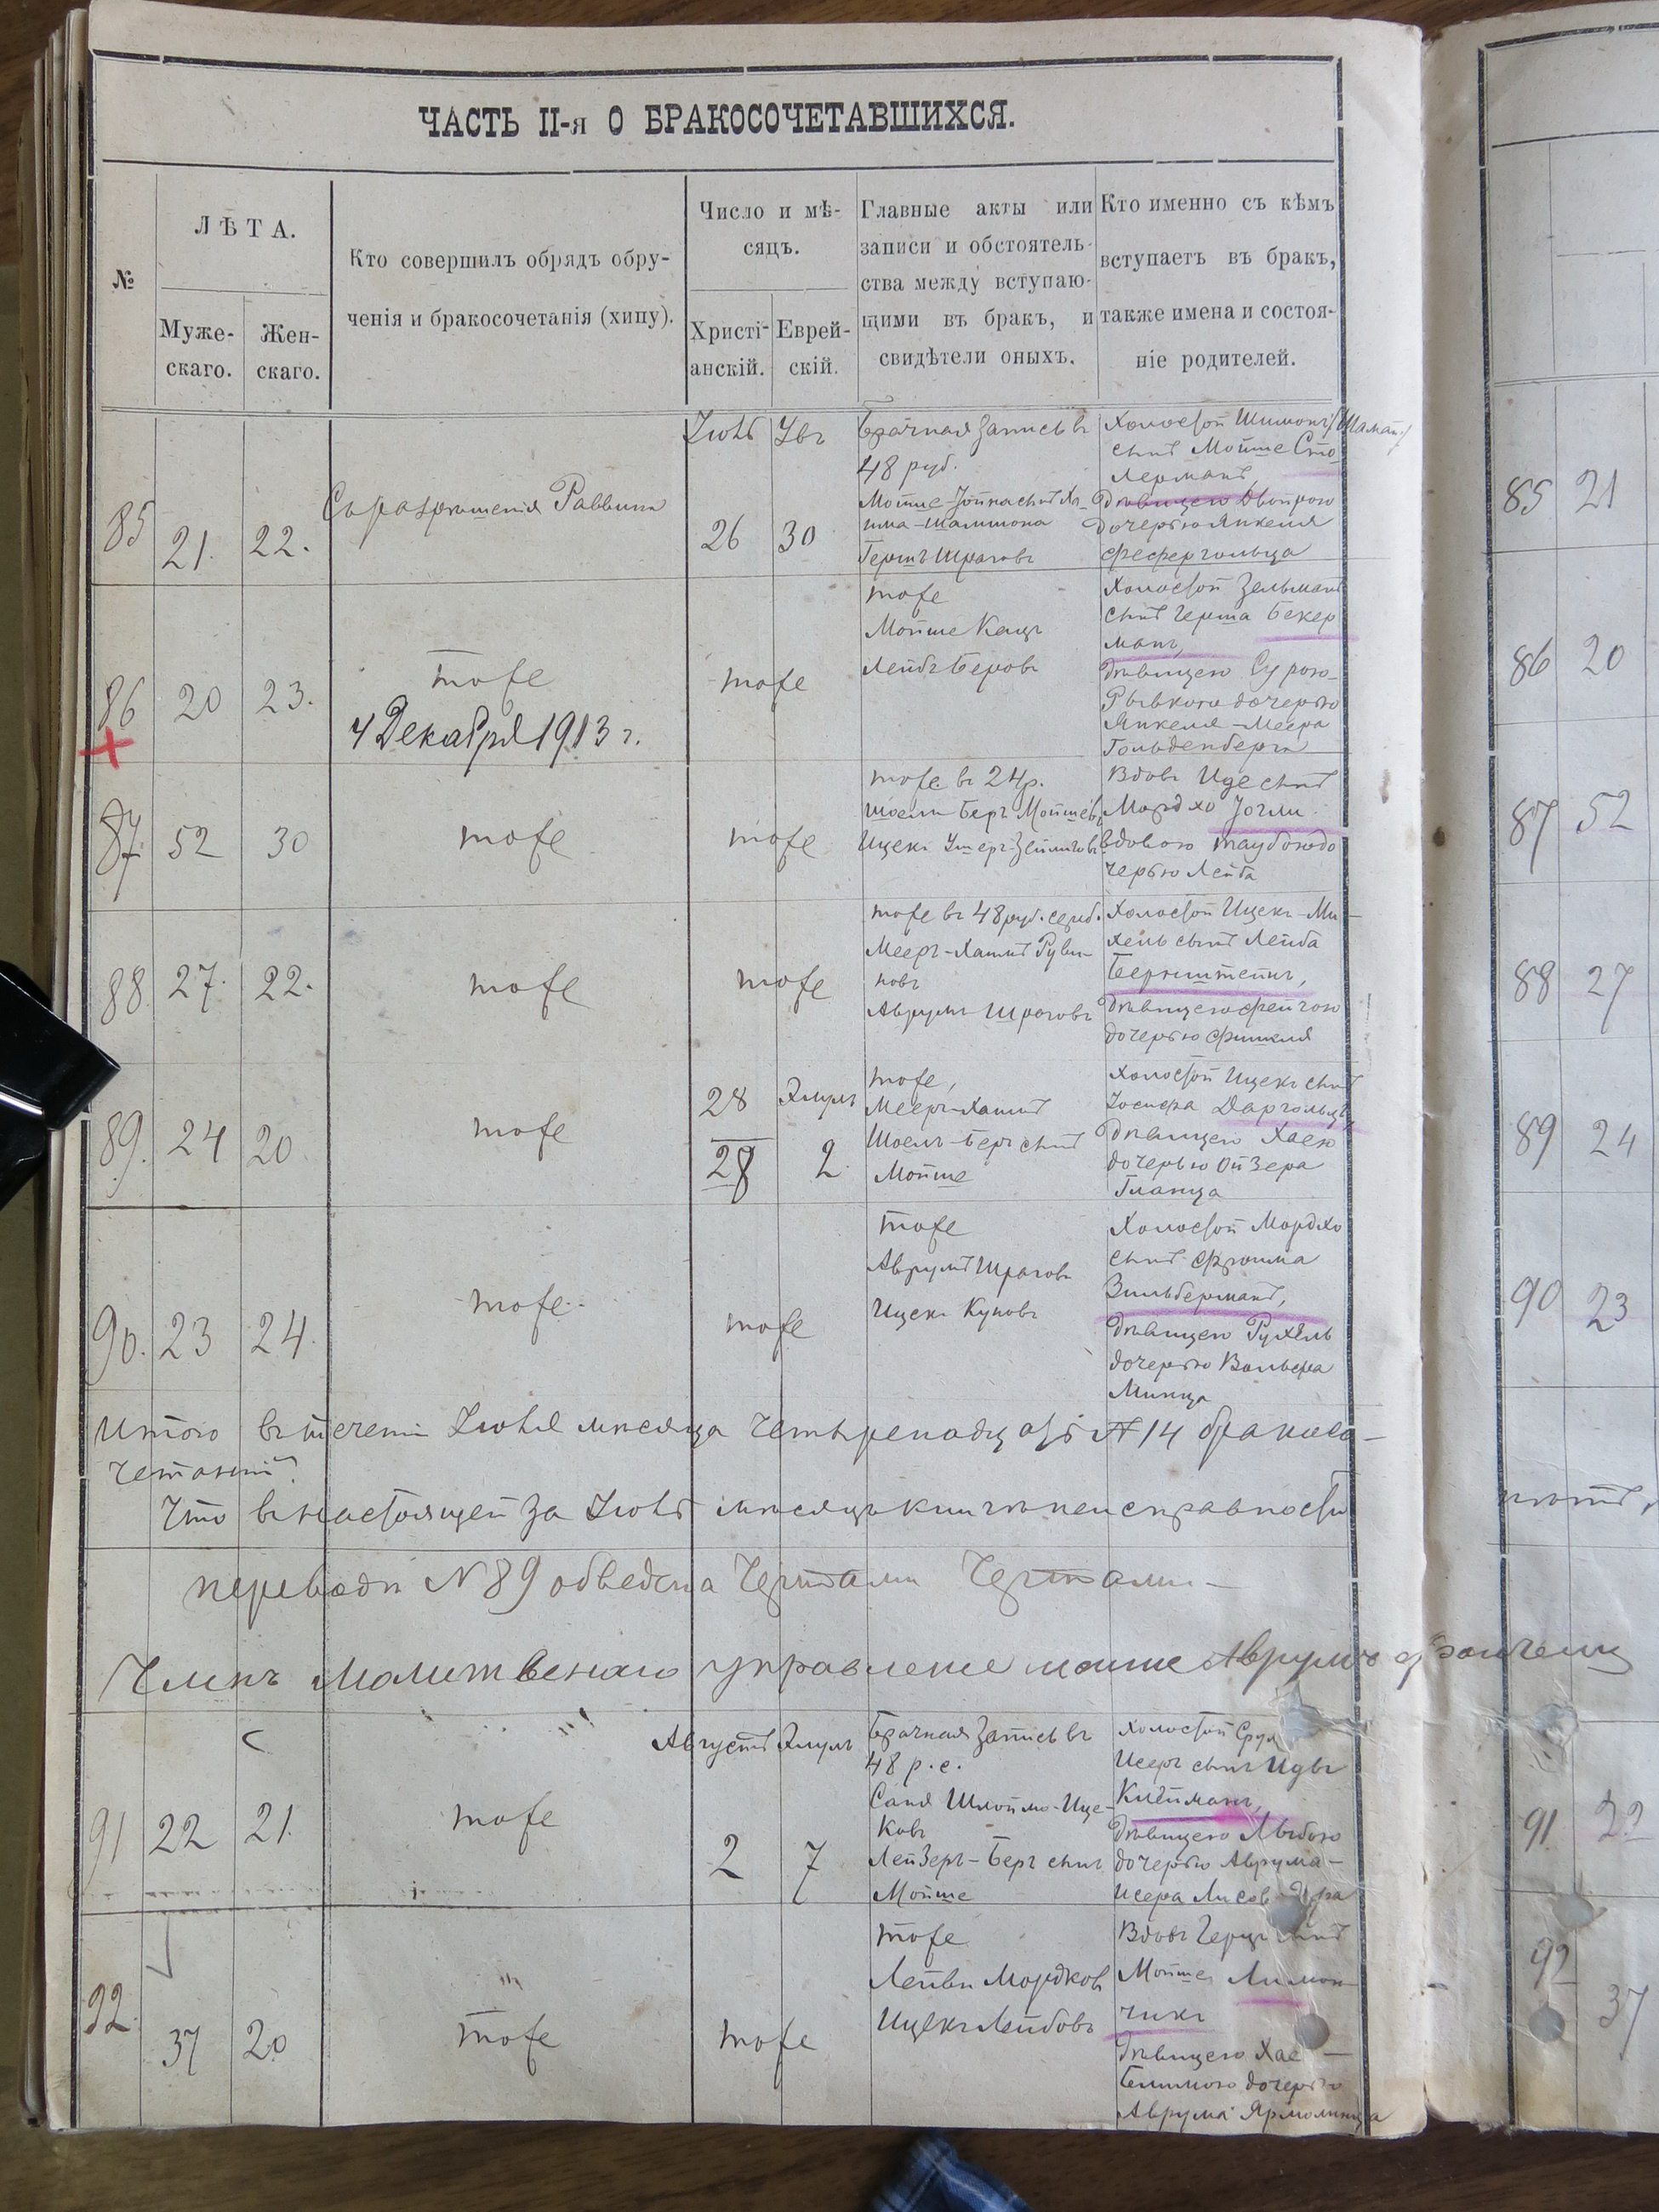 ЧАСТЬ II-я О БРАКОСОЧЕТАВШИХСЯ.
№
ЛѢТА.
Муже-
скаго.
Жен-
скаго.
Кто совершилъ обрядъ обру-
ченія и бракосочетанія (хипу).
Число и мѣ-
сяцъ.
Христі-
анскій.
Еврей-
скій.
Главные акты или
записи и обстоятель-
ства между вступаю-
щими въ бракъ, и
свидѣтели оныхъ.
Кто именно съ кѣмъ
вступаетъ въ бракъ,
также имена и состоя-
ніе родителей.
85
21.
22.
Съ разрѣшенія Раввина
Іюль
26
Овъ
30
Брачная запись въ
48 руб.
Гершъ Шраговъ
Холостой Шимонъ (Шаман)
сынъ Мойше Сто
лерманъ,
дѣвицею Двойрою
дочерью Янкеля
Фефергольца
86
20
23.
тоже
4 Декабря 1913 г.
тоже
тоже
Мойше Кацъ
Лейбъ Беровъ
Холостой Зельманъ
сынъ Герша Бекер
манъ,
дѣвицею Сурою-
Рывкою дочерью
Янкеля-Меера
Гольденберга
87
52
30
тоже
тоже
тоже въ 24 р.
Шоелъ Беръ Мойшев,
Ицекъ Ушеръ-Зейлиговъ
Вдовъ Иде сынъ
Мордхо
вдовою Таубою до
черью Лейба
88
27.
22.
тоже
тоже
тоже въ 48 руб. сереб.
Мееръ-Хаимъ Руви-
новъ
Аврумъ Шраговъ
Холостой Ицекъ-Ми-
хель сынъ Лейба
Бернштейнъ,
дѣвицею Фейгою
дочерью Фишеля
89.
24
20
тоже
28
28
Элулъ
2
тоже,
Мееръ-Хаимъ
Шоелъ-Беръ сынъ
Мойше
Холостой Ицекъ сынъ
Іосифа Даргольцъ,
дѣвицею Хаею
дочерью Ойзера
Гланца
90.
23
24.
тоже
тоже
тоже
Аврумъ Шраговъ
Ицекъ Куповъ
Холостой Мордхо
сынъ Фроима
Зильберманъ,
дѣвицею Рухель
дочерью Вольфа
Минца
Итого въ течени Іюля мѣсяца четырнадцать № 14 бракосо-
четаний
Что въ настоящей за Іюль мѣсяцъ книгѣ неисправности
№ 89 обведена чертами чертами-
Членъ Молитвенаго управление Мойше Аврумъ
91
22
21.
тоже
Августъ
2
Элулъ
7
Брачная запись въ
48 р. с.
Саня Шлойма-Ице-
ковъ
Лейзеръ-Беръ сынъ
Мойше
Холостой Срул
Исеръ сынъ Идъ
Клейманъ,
дѣвицею Лыбою
дочерью Аврума-
Исера
92.
37
20
тоже
тоже
тоже
Лейви Мордков
Ицекъ Лейбовъ
Вдовъ Герцъ сынъ
Мойше Лимон
чикъ
дѣвицею Хае-
дочерью
Аврума Ярмолинца
85 21
86 20
87 52
88 27
89 24
90 23
91 22
92 37